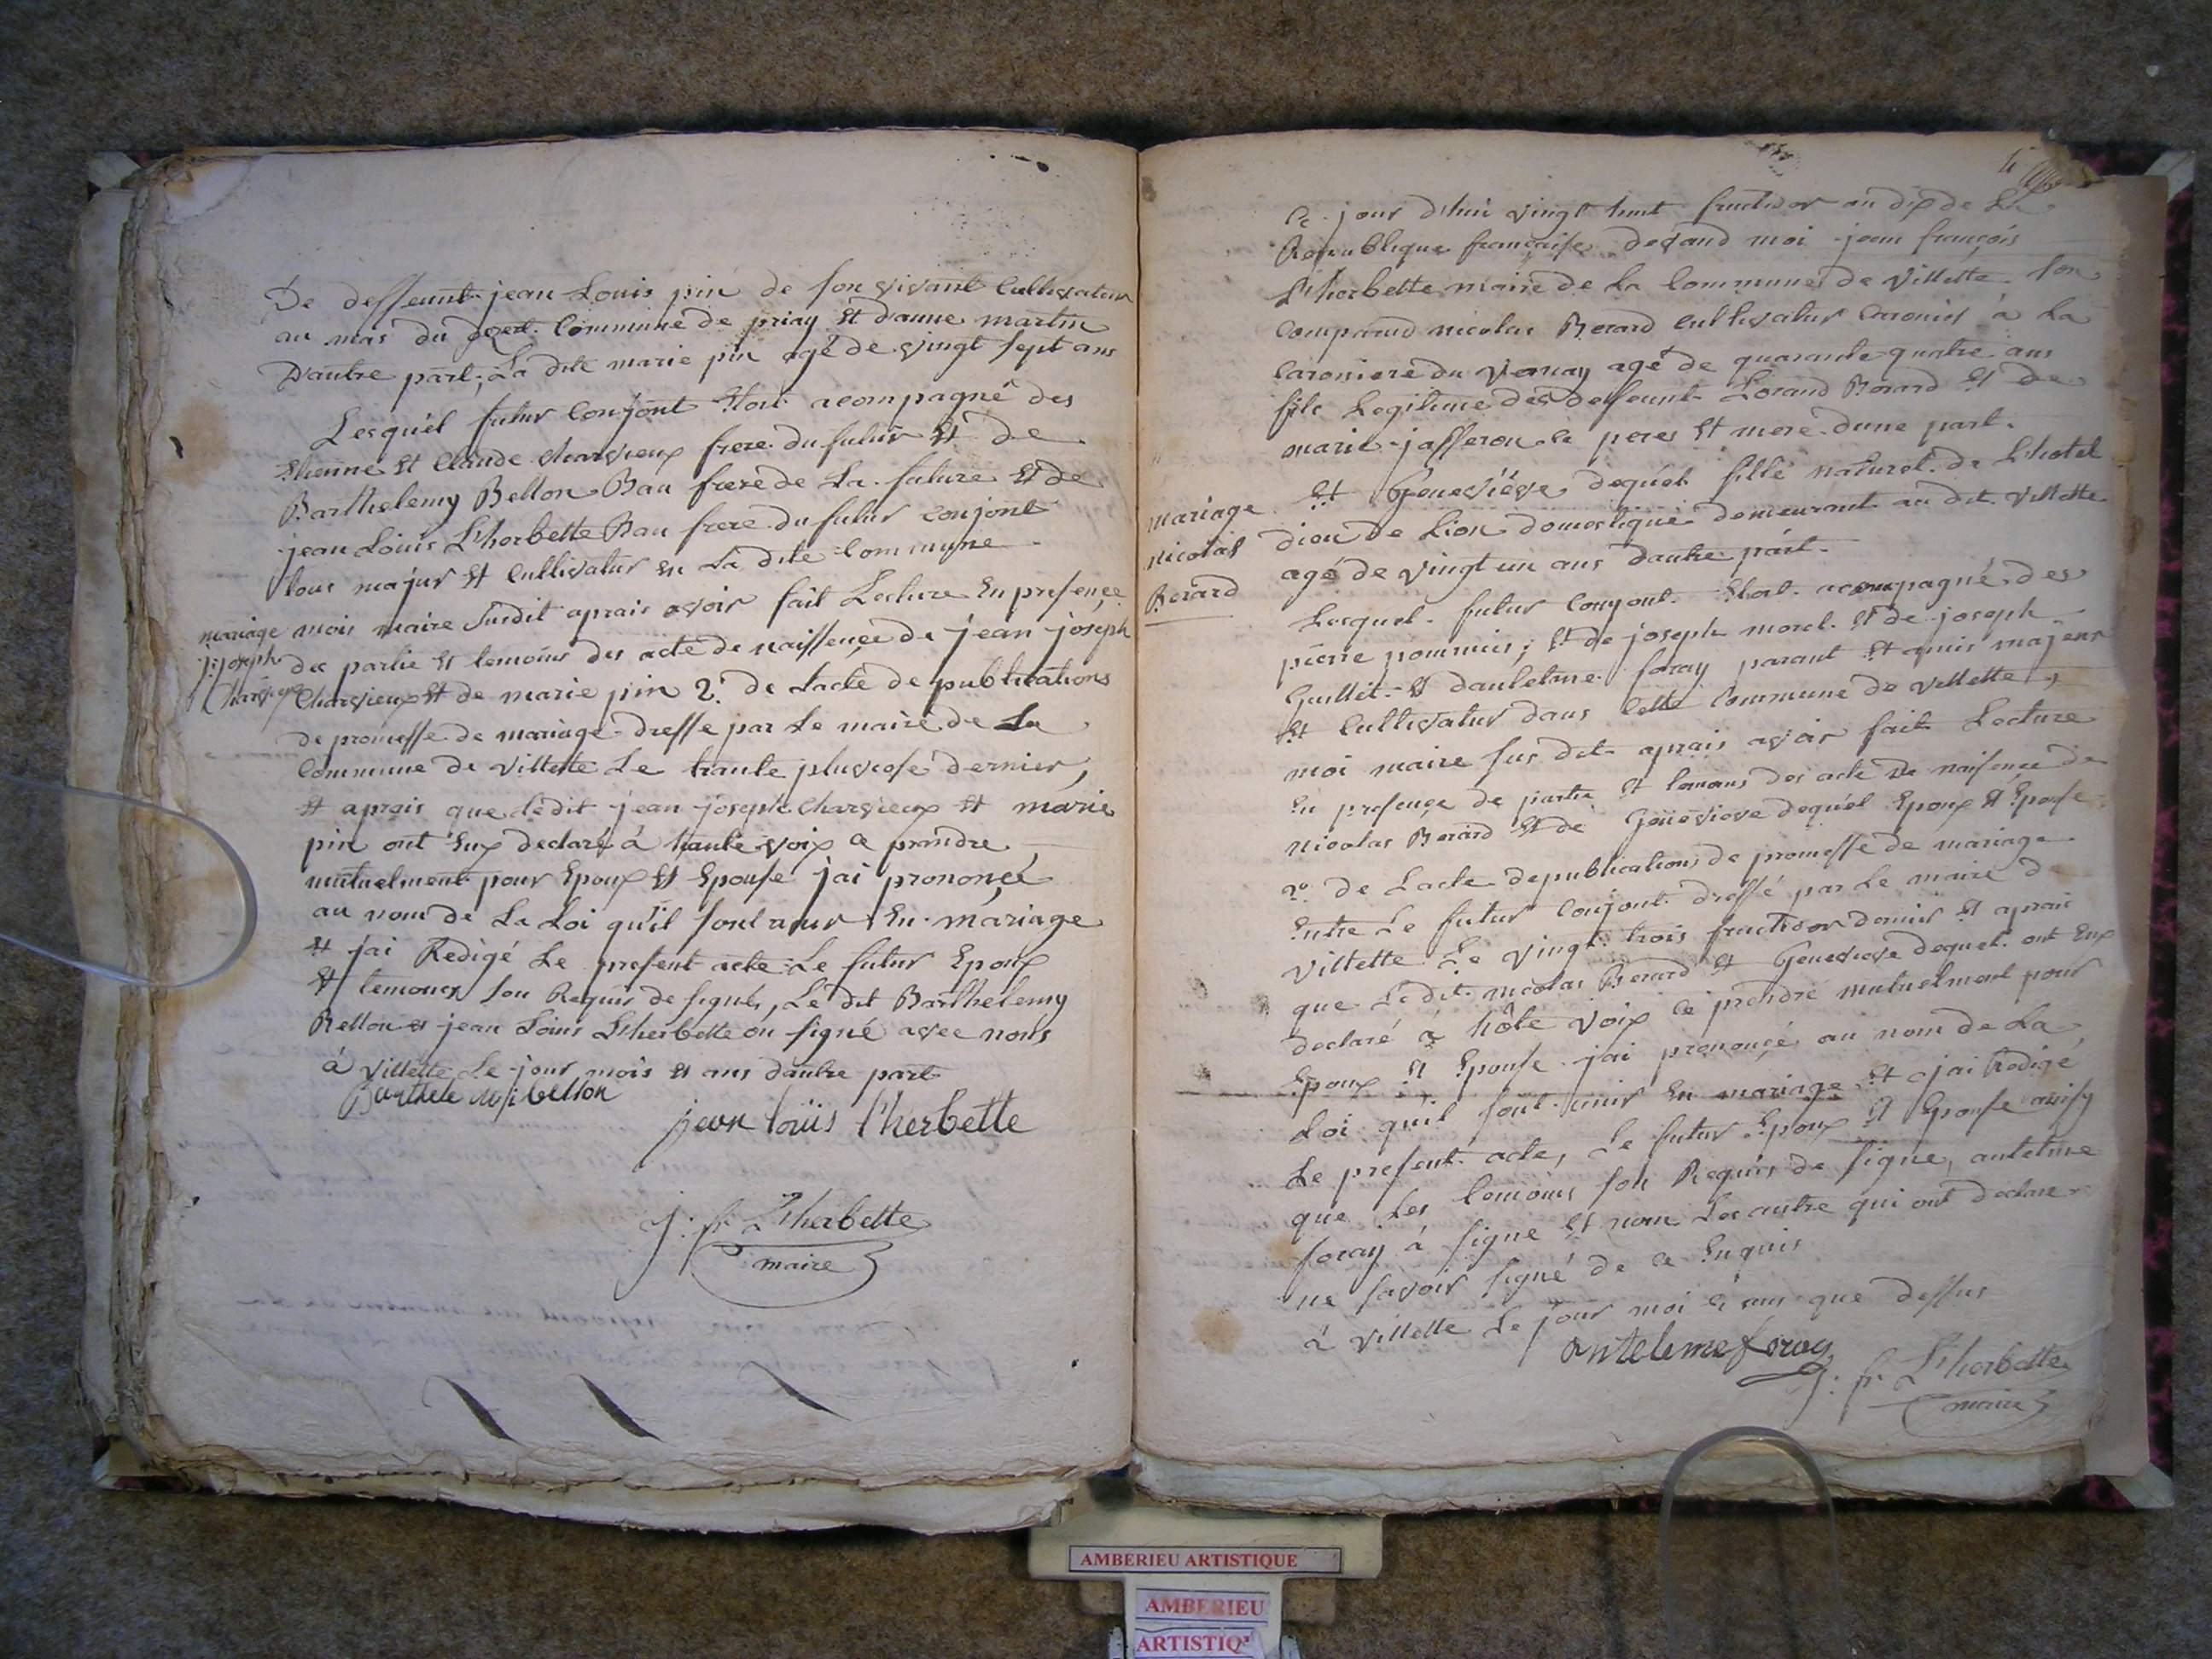 De deffeunt jean Louis pin de son vivant Cultivateur
au mas du Commune de priay Et danne martin
D'autre part, La dite marie pin agé de vingt sept ans
Lesquél futur Conjont Etoit acompagné des
Etienne Et Claude charvieux frere du futur Et de
Barthelemy Bellon Bau frere de La future Et de
jean Louis L'herbette Bau frere du futur conjont
tous majur Et Cultivatur en La dite Commune
mariage
j: joseph
Charvieux
mois maire Susdit aprais avoir fait Lecture En presençe
des partie Et temoins des acte de naissençe de jean joseph
Charvieux Et de marie pin 2.° de Lacte de publications
de promesse de mariage dresse par Le maire de La
Commune de Villette Le trante pluviose dernier,
Et aprais que Ledit jean joseph charvieux Et marie
pin ont Eux declaré à haute voix ce prandre
mutuelment pour Epoux Et Epouse j'ai prononçé
au nom de La Loi qu'il sont unir En mariage
Et j'ai Redigé Le present acte Le futur Epoux
Et temoins son Requis de signés, Le dit Barthelemy
Bellon Et jean Louis L'herbette on signé avec nous
à Villette Le jour mois Et ans dautre part
Barthelemi bellon
jean loüis l'herbette
J: fr. L'herbette
maire
4
Ce jour d'hui vingt huit fructidor an dix de La
Republique françaisse devand moi jean françois
L'herbette maire de La Commune de Villette Son
Comparud nicolas Berard Cultivatur Caronier à La
Caroniere du Vernay agé de quarante quatre ans
fils Legitime des deffeunt Lorand Berard Et de
marie jasseron ce peres Et mere dune part.
mariage
nicolas
Berard
Et Geneviéve dequél fille naturel de L'hotel
dieu de Lion domestique demeurant au dit Villette
agé de vingt un ans dautre part.
Lesquel futur Conjont Etoit acompagné des
pierre pommier; Et de joseph morel Et de joseph
Guillet Et dantelme foray parant Et amis majeur
Et Cultivatur dans Cette Commune de Villette,
moi maire sus dit aprais avoir fait Lecture
En presençe de partie Et temoins des acte de naisençe de
nicolas Berard Et de Geneviéve dequél Epoux Et Epouse
2° de Lacte de publications de promesse de mariage
Entre Le futur Conjont dressé par Le maire de
Villette Le vingt trois fructidor dernier Et aprais
que Ledit nicolas Berard Et Genevieve dequel ont Eux
declaré à hôte voix Ce prendre mutuelment pour
Epoux Et Epouse j'ai prononçé au nom de La
Loi qu'il sont unir En mariage Et j'ai Redigé
Le present acte, Le futur Epoux Et Epouse ainsy
que Les temoins son Requis de signe, antelme
foray à signe Et nom Les autre qui ont declare
ne savoir signé de ce Enquis
à Villette Le jour moi Et ans que dessus
antelemeforay
J: fr. L'herbette
maire
AMBERIEU ARTISTIQUE
AMBERIEU
ARTISTIQ